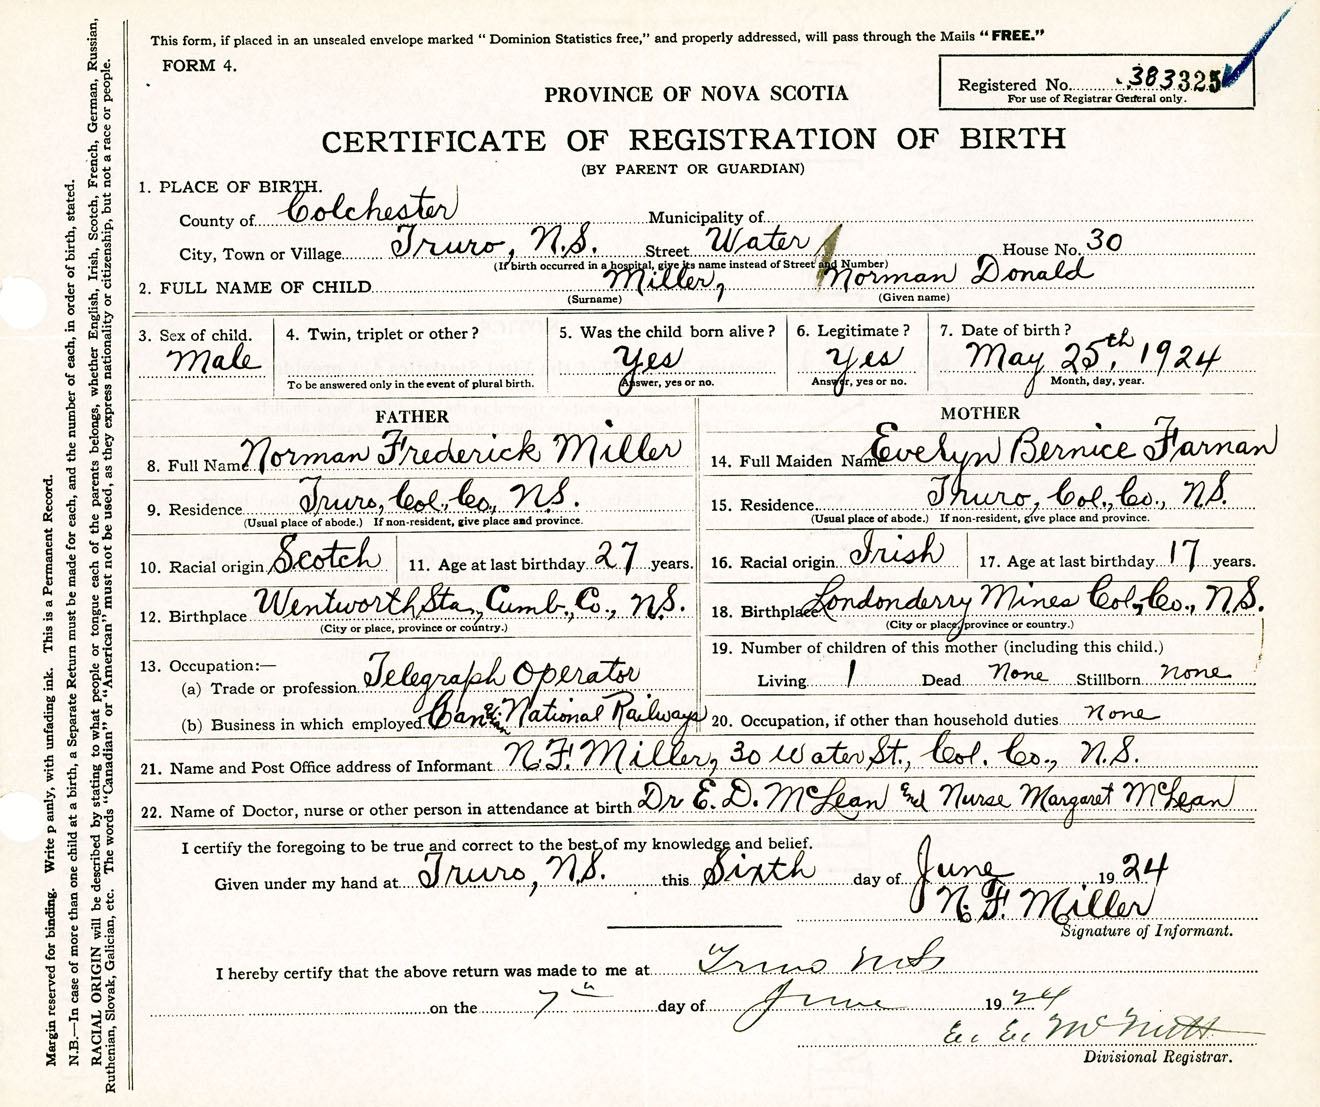 This form, if placed in an unsealed envelope marked " Dominion Statistics free," and properly addressed, will pass through the Mails " FREE."
FORM 4.
Registered No. 383325
For use of Registrar General only.
PROVINCE OF NOVA SCOTIA
CERTIFICATE OF REGISTRATION OF BIRTH
(BY PARENT OR GUARDIAN)
1. PLACE OF BIRTH.
County of Colchester Municipality of
City, Town or Village Truro, N.S. Street Water House No. 30
(If birth occurred in a hospital, give its name instead of Street and Number)
2. FULL NAME OF CHILD Miller, Norman Donald
(Surname) (Given name)
3. Sex of child. 4. Twin, triplet or other ? 5. Was the child born alive ? 6. Legitimate ? 7. Date of birth ?
Male Yes Yes May 25th, 1924
To be answered only in the event of plural birth. Answer, yes or no. Answer, yes or no. Month, day, year.
FATHER MOTHER
8. Full Name Norman Frederick Miller 14. Full Maiden Name Evelyn Bernice Farnan
9. Residence Truro, Col., Co., N.S. 15. Residence Truro, Col., Co., N.S.
(Usual place of abode.) If non-resident, give place and province. (Usual place of abode.) If non-resident, give place and province.
10. Racial origin Scotch 11. Age at last birthday 27 years. 16. Racial origin Irish 17. Age at last birthday 17 years.
12. Birthplace Wentworth Sta., Cumb., Co., N.S. 18. Birthplace Londonderry Mines Col., Co., N.S.
(City or place, province or country.) (City or place, province or country.)
13. Occupation:— 19. Number of children of this mother (including this child.)
(a) Trade or profession Telegraph Operator Living 1 Dead None Stillborn none
(b) Business in which employed Can National Railways 20. Occupation, if other than household duties none
21. Name and Post Office address of Informant N.F. Miller, 30 Water St., Col. Co., N.S.
22. Name of Doctor, nurse or other person in attendance at birth Dr E. D. McLean and Nurse Margaret McLean
I certify the foregoing to be true and correct to the best of my knowledge and belief.
Given under my hand at Truro, N.S. this Sixth day of June 1924
N. F. Miller
Signature of Informant.
I hereby certify that the above return was made to me at Truro NS
on the 7th day of June 1924
McNutt
Divisional Registrar.
Margin reserved for binding. Write p anly, with unfading ink. This is a Permanent Record.
N.B.—In case of more than one child at a birth, a Separate Return must be made for each, and the number of each, in order of birth, stated.
RACIAL ORIGIN will be described by stating to what people or tongue each of the parents belongs, whether English, Irish, Scotch, French, German, Russian,
Ruthenian, Slovak, Galician, etc. The words "Canadian" or "American" must not be used, as they express nationality or citizenship, but not a race or people.